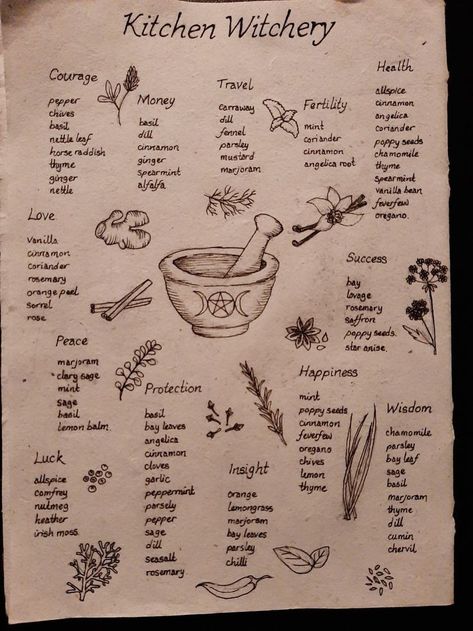 Kitchen Witchery
Courage
pepper
chives
basil
nettle leaf
horse raddish
thyme
ginger
nettle
Money
basil
dill
cinnamon
ginger
spearmint
alfalfa
Travel
carraway
dill
fennel
parsley
mustard
marjoram
Fertility
mint
coriander
cinnamon
angelica root
Health
allspice
cinnamon
angelica
coriander
poppy seeds
chamomile
thyme
spearmint
vanilla bean
feverfew
oregano.
Love
vanilla
cinnamon
coriander
rosemary
orange peel
sorrel
rose
Success
bay
lovage
rosemary
saffron
poppy seeds.
star anise.
Peace
marjoram
clary sage
mint
sage
basil
lemon balm.
Protection
basil
bay leaves
angelica
cinnamon
cloves
garlic
peppermint
parsely
pepper
sage
dill
seasalt
rosemary
Happiness
mint
poppy seeds
cinnamon
feverfew
oregano
chives
lemon
thyme
Wisdom
chamomile
parsley
bay leaf
sage
basil
marjoram
thyme
dill
cumin
chervil
Luck
allspice
comfrey
nutmeg
heather
irish moss.
Insight
orange
lemongrass
marjoram
bay leaves
parsley
chilli